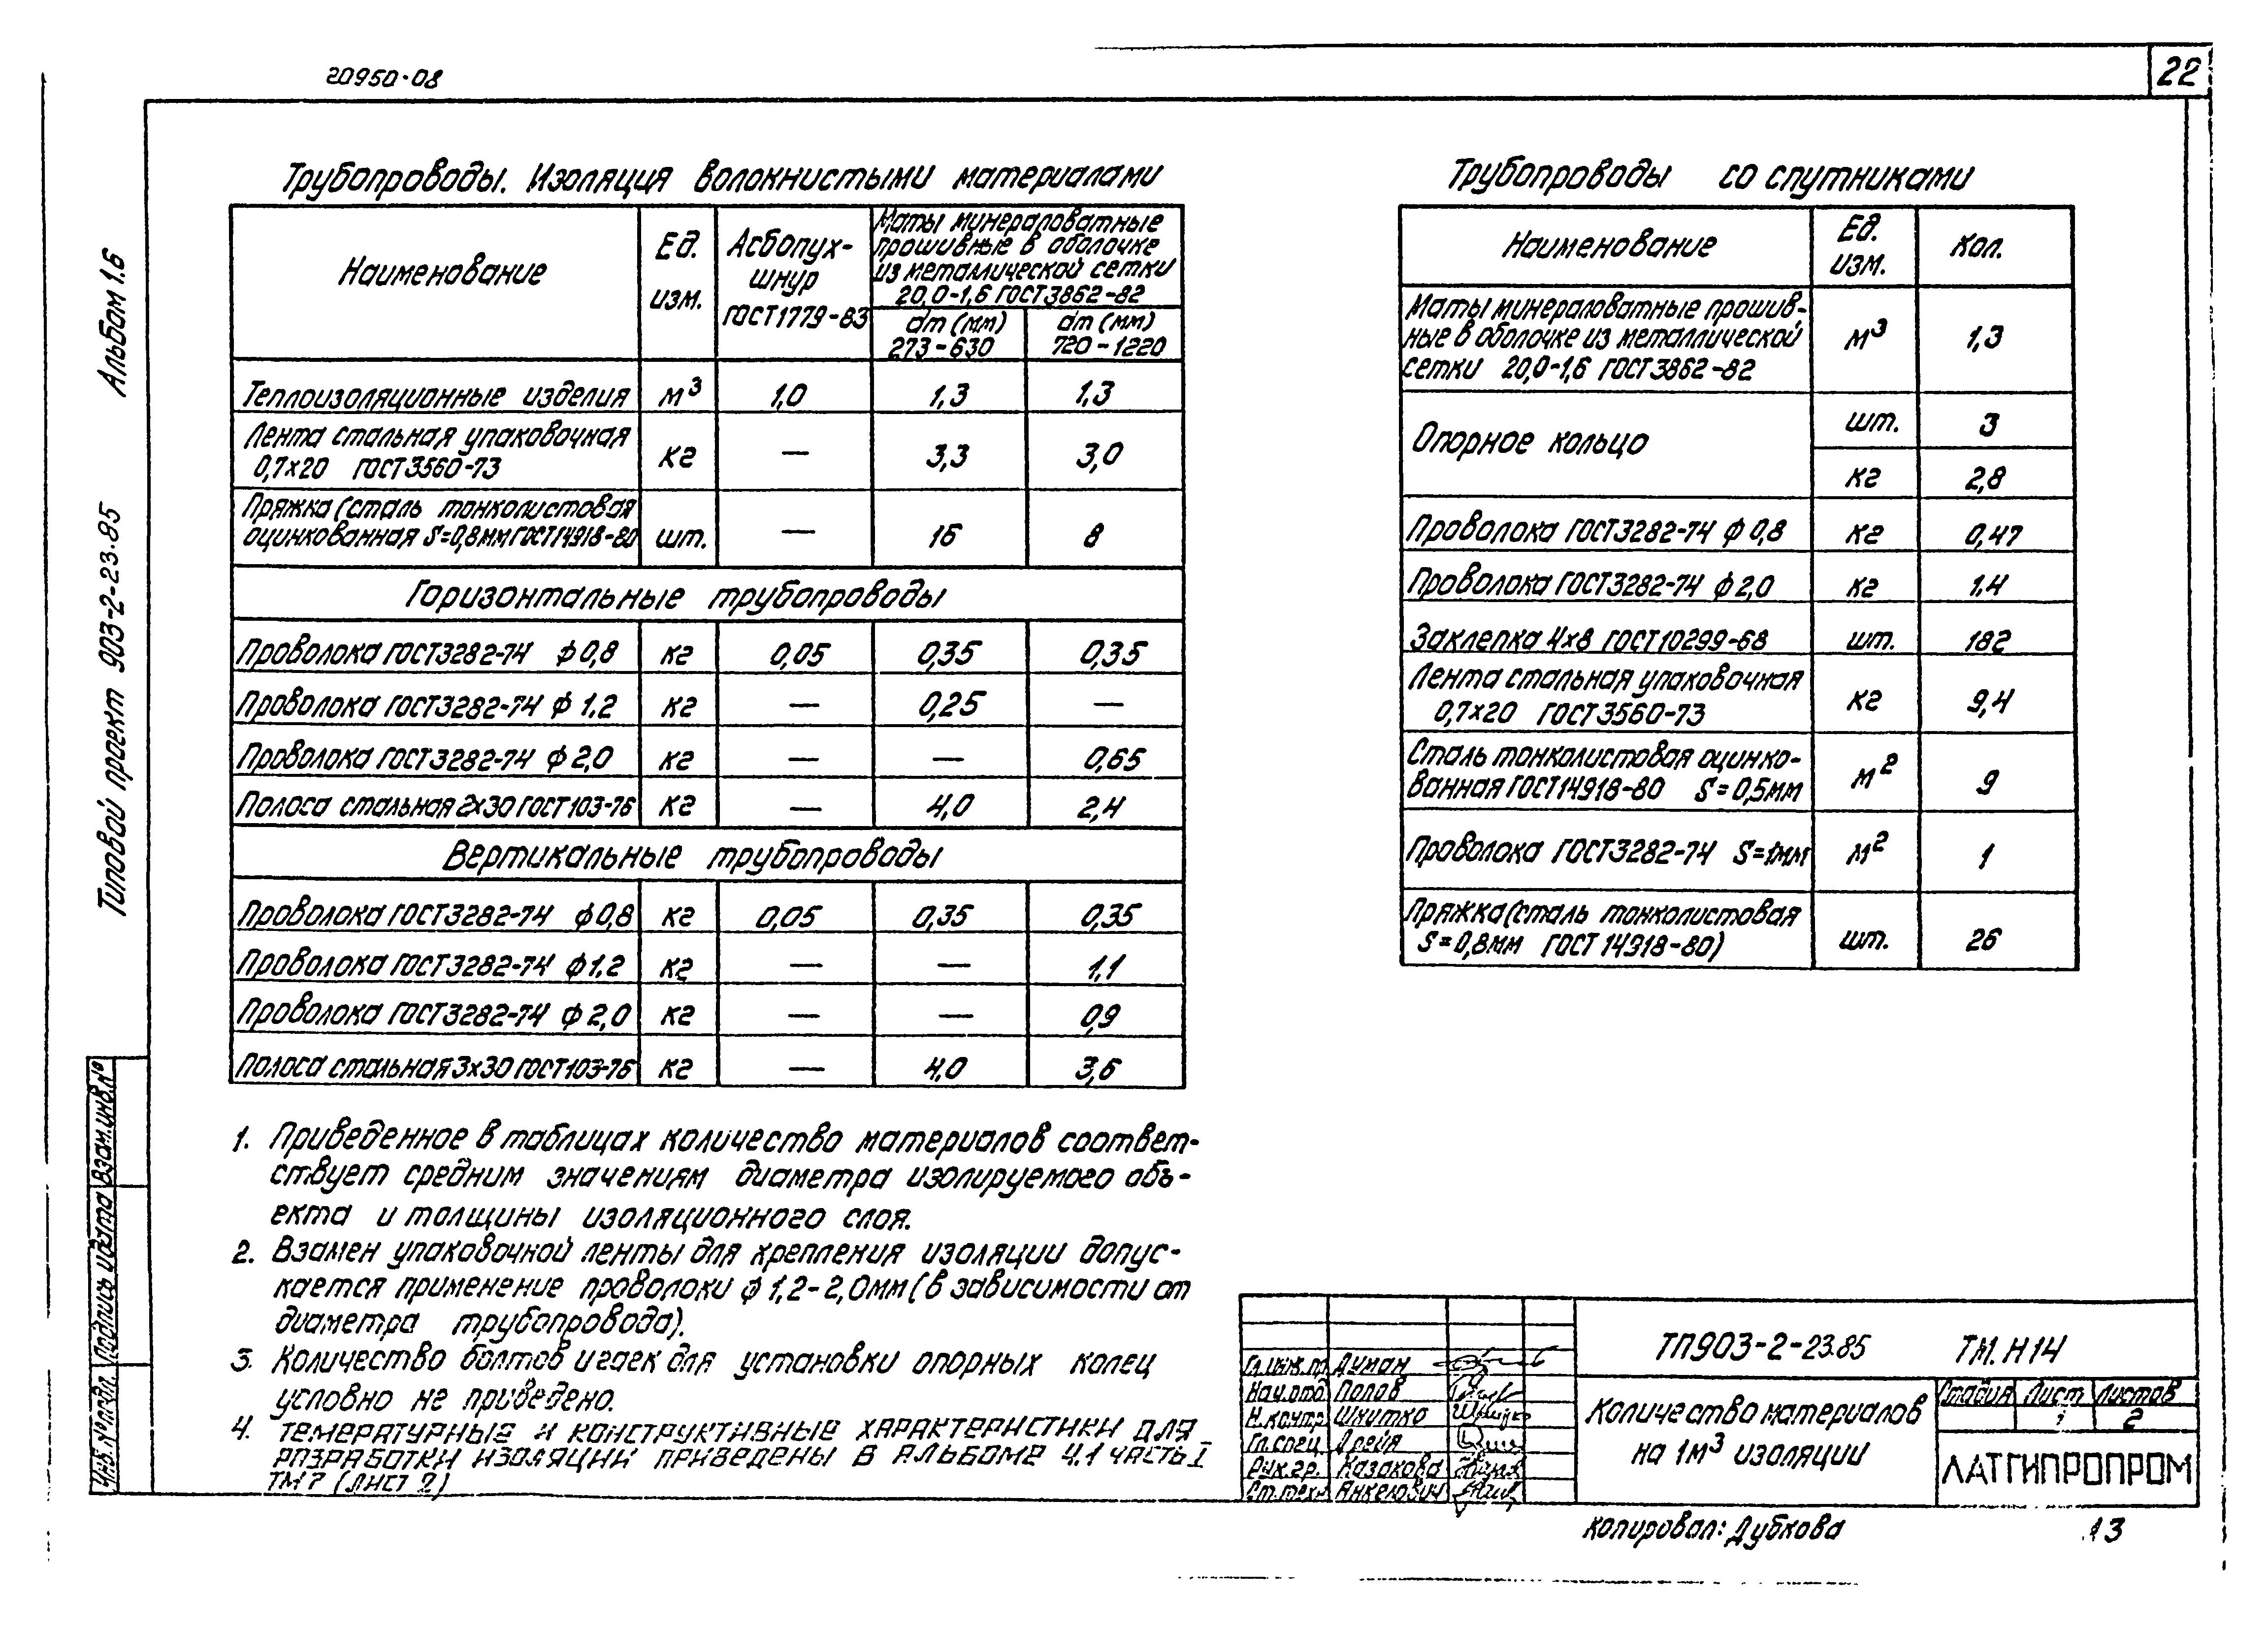 20950-08
22
Альбом 1.6
Типовой проект 903-2-23.85
Трубопроводы. Изоляция волокнистыми материалами
Наименование
Ед.
изм.
Асбопух-
шнур
ГОСТ 1779-83
Маты минераловатные
прошивные в оболочке
из металлической сетки
20,0-1,6 ГОСТ3862-82
dт (мм)
273-630
dт (мм)
720-1220
Теплоизоляционные изделия м³ 1,0 1,3 1,3
Лента стальная упаковочная
0,7х20 ГОСТ3560-73 кг — 3,3 3,0
Пряжка (сталь тонколистовая
оцинкованная S=0,8мм ГОСТ14918-80 шт. — 16 8
Горизонтальные трубопроводы
Проволока ГОСТ3282-74 ф 0,8 кг 0,05 0,35 0,35
Проволока ГОСТ3282-74 ф 1,2 кг — 0,25 —
Проволока ГОСТ3282-74 ф 2,0 кг — — 0,65
Полоса стальная 2х30 ГОСТ103-76 кг — 4,0 2,4
Вертикальные трубопроводы
Проволока ГОСТ3282-74 ф 0,8 кг 0,05 0,35 0,35
Проволока ГОСТ3282-74 ф 1,2 кг — — 1,1
Проволока ГОСТ3282-74 ф 2,0 кг — — 0,9
Полоса стальная 3х30 ГОСТ103-76 кг — 4,0 3,6
Трубопроводы со спутниками
Наименование
Ед.
изм.
Кол.
Маты минераловатные прошив-
ные в оболочке из металлической
сетки 20,0-1,6 ГОСТ3862-82 м³ 1,3
Опорное кольцо шт. 3
кг 2,8
Проволока ГОСТ3282-74 ф 0,8 кг 0,47
Проволока ГОСТ3282-74 ф 2,0 кг 1,4
Заклепка 4х8 ГОСТ10299-68 шт. 182
Лента стальная упаковочная
0,7х20 ГОСТ3560-73 кг 9,4
Сталь тонколистовая оцинко-
ванная ГОСТ14918-80 S=0,5мм м² 9
Проволока ГОСТ3282-74 S=1мм м² 1
Пряжка (сталь тонколистовая
S=0,8мм ГОСТ 14918-80) шт. 26
1. Приведенное в таблицах количество материалов соответ-
ствует средним значениям диаметра изолируемого объ-
екта и толщины изоляционного слоя.
2. Взамен упаковочной ленты для крепления изоляции допус-
кается применение проволоки ф 1,2-2,0мм (в зависимости от
диаметра трубопровода).
3. Количество болтов и гаек для установки опорных колец
условно не приведено.
4. Температурные и конструктивные характеристики для
разработки изоляции приведены в альбоме 4.1 часть I
ТМ7 (лист 2)
Взам.инв.№
Подпись и дата
Инв.№ подл.
Гл.инж.пр. Думан
Нач.отд Попов
Н.контр. Шнитко
Гл.спец. Дрейя
Рук.гр. Казакова
Ст.техн. Анкелович
ТП903-2-23.85 ТМ.Н14
Количество материалов
на 1м³ изоляции
Стадия Лист Листов
1 2
ЛАТГИПРОПРОМ
Копировал: Дубкова
13